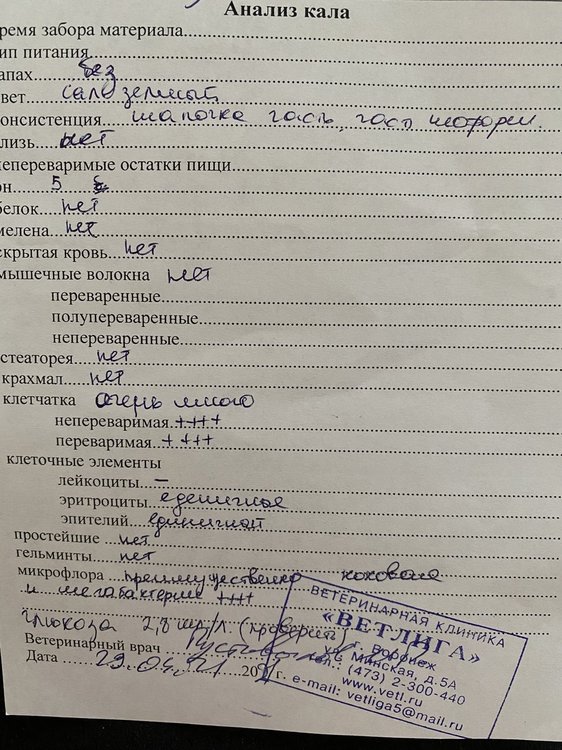 Анализ кала
ремя забора материала
ип питания
апах без
вет
онсистенция шапочка часть, часть
лизь нет
непереваримые остатки пищи
рн 5
белок нет
мелена нет
скрытая кровь нет
мышечные волокна нет
переваренные
полупереваренные
непереваренные
стеаторея нет
крахмал нет
клетчатка очень много
непереваримая ++++
переваримая ++++
клеточные элементы
лейкоциты –
эритроциты единичные
эпителий единичный
простейшие нет
гельминты нет
микрофлора преимущественно кокковая
и мегабактерии +++
Глюкоза 2,8
Ветеринарный врач
Дата 29.04.21 20
ВЕТЕРИНАРНАЯ КЛИНИКА
«ВЕТЛИГА»
г. Воронеж
ул. Минская, д.5А
тел.: (473) 2-300-440
www.vetl.ru
г. e-mail: vetliga5@mail.ru